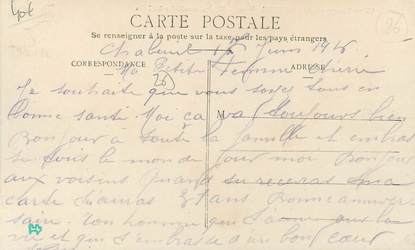 96
CARTE POSTALE
Se renseigner à la poste sur la taxe pour les pays étrangers
Chabeuil 15 Juin 1915
CORRESPONDANCE ADRESSE
Ma Petite Femme chérie
(26)
Je souhaite que vous soyez tous en
bonne santé Moi ça va toujours bien
M
Bonjour à toute la famille et embras
se tous le monde pour moi Bonjour
aux voisins quand tu receras ma
carte tu auras ans Bonne anniver
saire Ton homme que t'aime que
vie et que t'embrasse d'un bon cœur